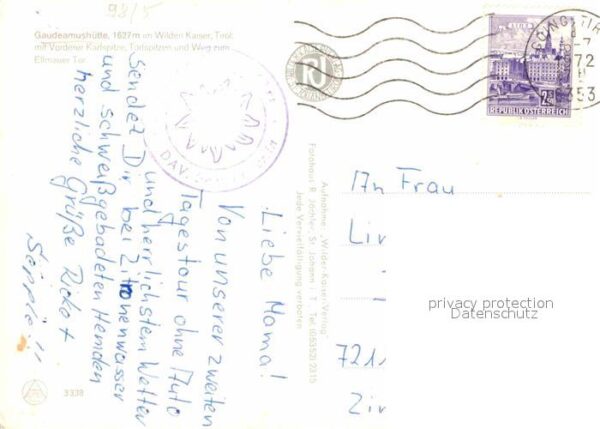 93/5
Gaudeamushütte, 1627 m im Wilden Kaiser, Tirol
mit Vorderer Karlspitze, Törlspitzen und Weg zum
Ellmauer Tor
Liebe Mama!
Von unserer zweiten
Tagestour ohne Auto
und herrlichstem Wetter
sendet Dir bei Zitronenwasser
und schweißgebadeten Hemden
herzliche Grüße Rick +
Aufnahme: "Wilder-Kaiser-Verlag"
Fotohaus R. Jöchler, St. Johann i. T., Tel. (05352) 2315
Jede Vervielfältigung verboten
3338
DAV
REPUBLIK ÖSTERREICH
72
An Frau
Liv
-
721
Ziv
privacy protection
Datenschutz